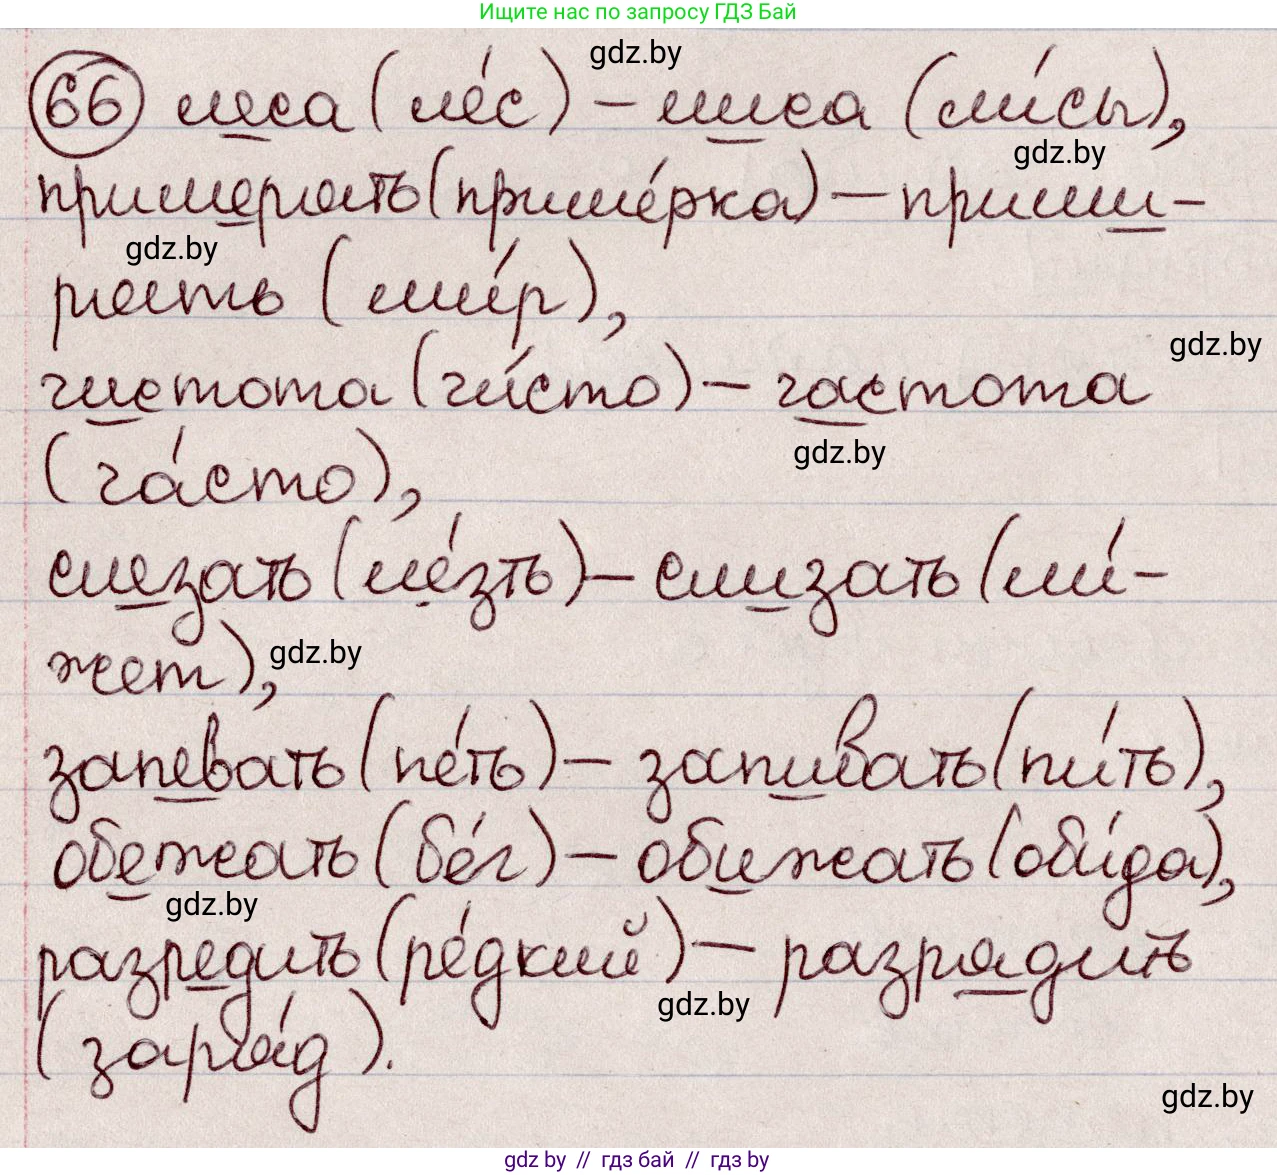 Ищите нас по запросу ГДЗ Бай
gdz.by
66 леса (ле́с) – лиса (ли́сы),
gdz.by
примерять (приме́рка) – прими-
gdz.by
рять (ми́р),
gdz.by
чистота (чи́сто) – частота
gdz.by
(ча́сто),
слезать (ле́зть) – слизать (ли́-
жет),
gdz.by
запевать (пе́ть) – запивать (пи́ть),
обежать (бе́г) – обижать (оби́да),
gdz.by
разредить (ре́дкий) – разрядить
gdz.by
(заря́д).
gdz.by
gdz by // гдз бай // гдз by